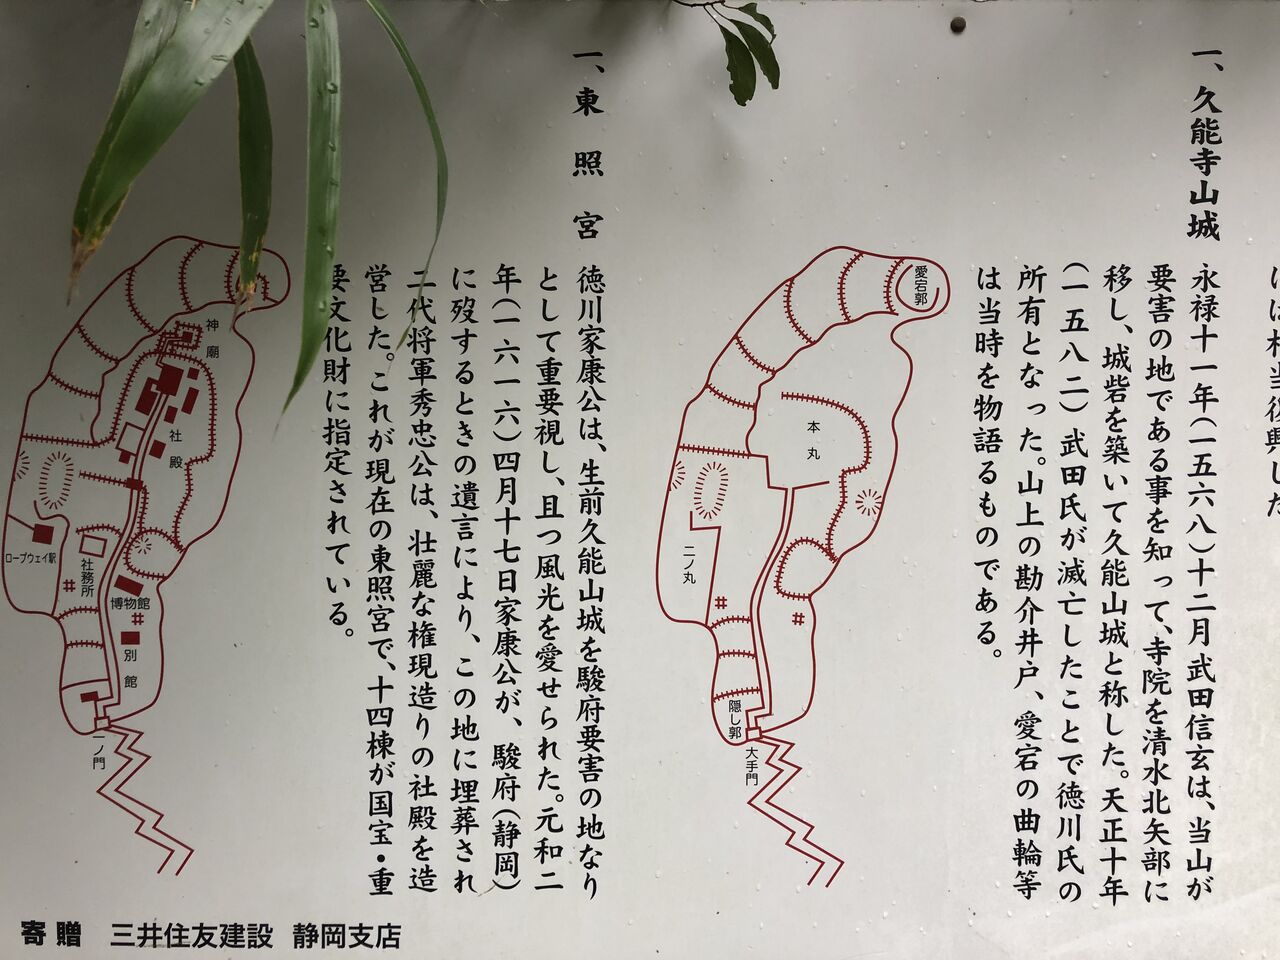 一、久能寺山城
永禄十一年(一五六八)十二月武田信玄は、当山が
要害の地である事を知って、寺院を清水北矢部に
移し、城砦を築いて久能山城と称した。天正十年
(一五八二)武田氏が滅亡したことで徳川氏の
所有となった。山上の勘介井戸、愛宕の曲輪等
は当時を物語るものである。
愛宕郭
本丸
二ノ丸
隠し郭
大手門
一、東照宮
徳川家康公は、生前久能山城を駿府要害の地なり
として重要視し、且つ風光を愛せられた。元和二
年(一六一六)四月十七日家康公が、駿府(静岡)
に歿するときの遺言により、この地に埋葬され
二代将軍秀忠公は、壮麗な権現造りの社殿を造
営した。これが現在の東照宮で、十四棟が国宝・重
要文化財に指定されている。
神廟
社殿
ロープウェイ駅
社務所
博物館
別館
一ノ門
寄贈 三井住友建設 静岡支店